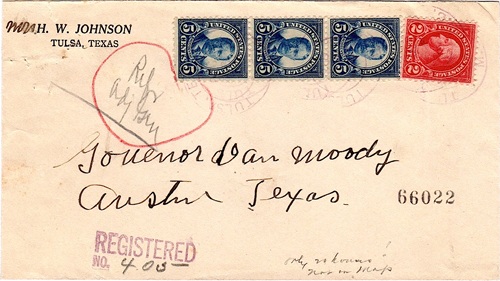 Mrs H. W. JOHNSON
TULSA, TEXAS
UNITED STATES POSTAGE
5 CENTS 5
UNITED STATES POSTAGE
5 CENTS 5
UNITED STATES POSTAGE
5 CENTS 5
UNITED STATES POSTAGE
2 CENTS 2
Refr
Adj Gen
Govenor Dan Moody
Austin Texas.
66022
REGISTERED
NO. 405
not on Map